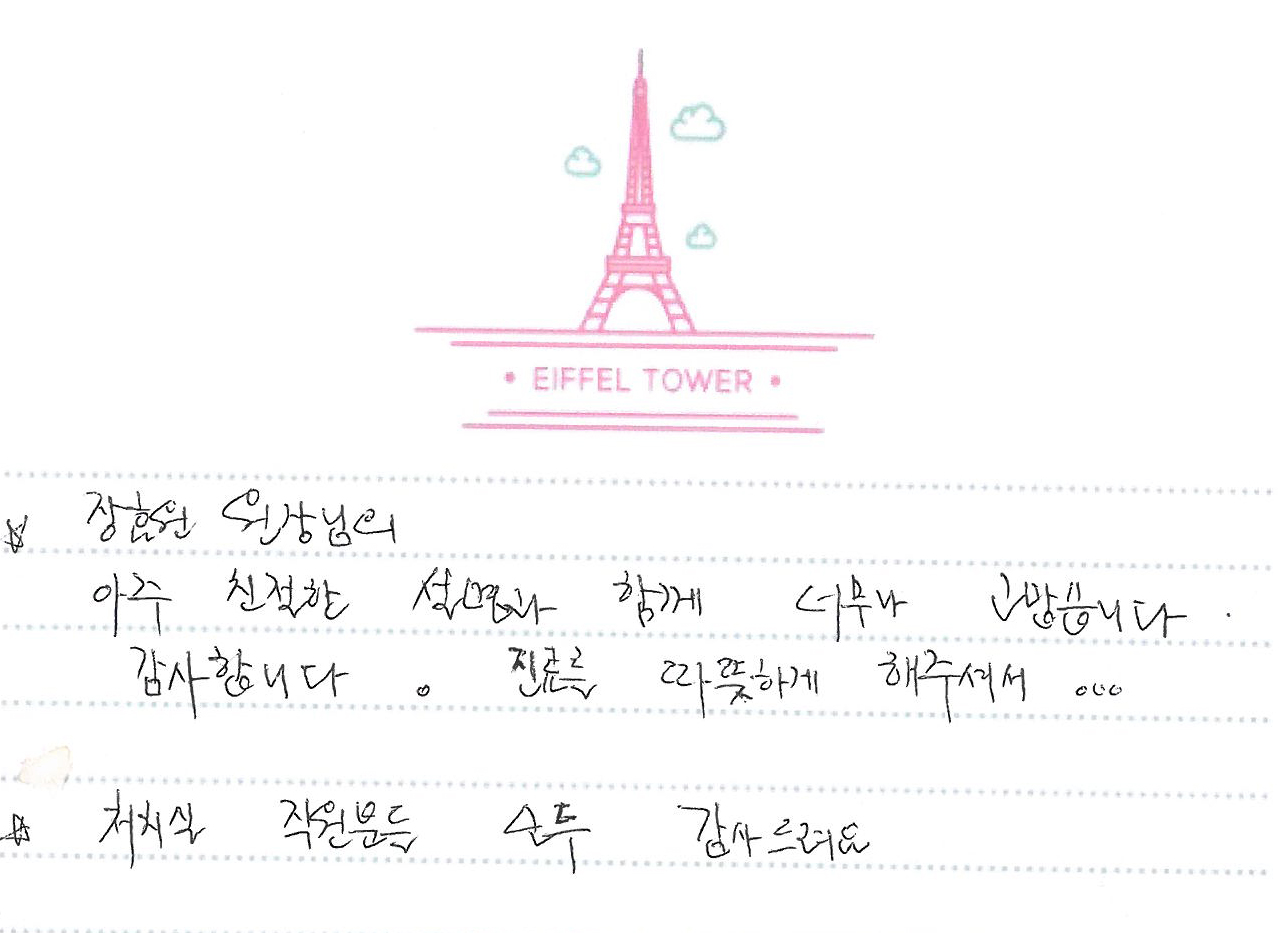 • EIFFEL TOWER •
☆ 장효원 원장님의
아주 친절한 설명과 함께 너무나 고맙습니다.
감사합니다. 진료를 따뜻하게 해주셔서 ...
☆ 처치실 직원분들 감사드려요